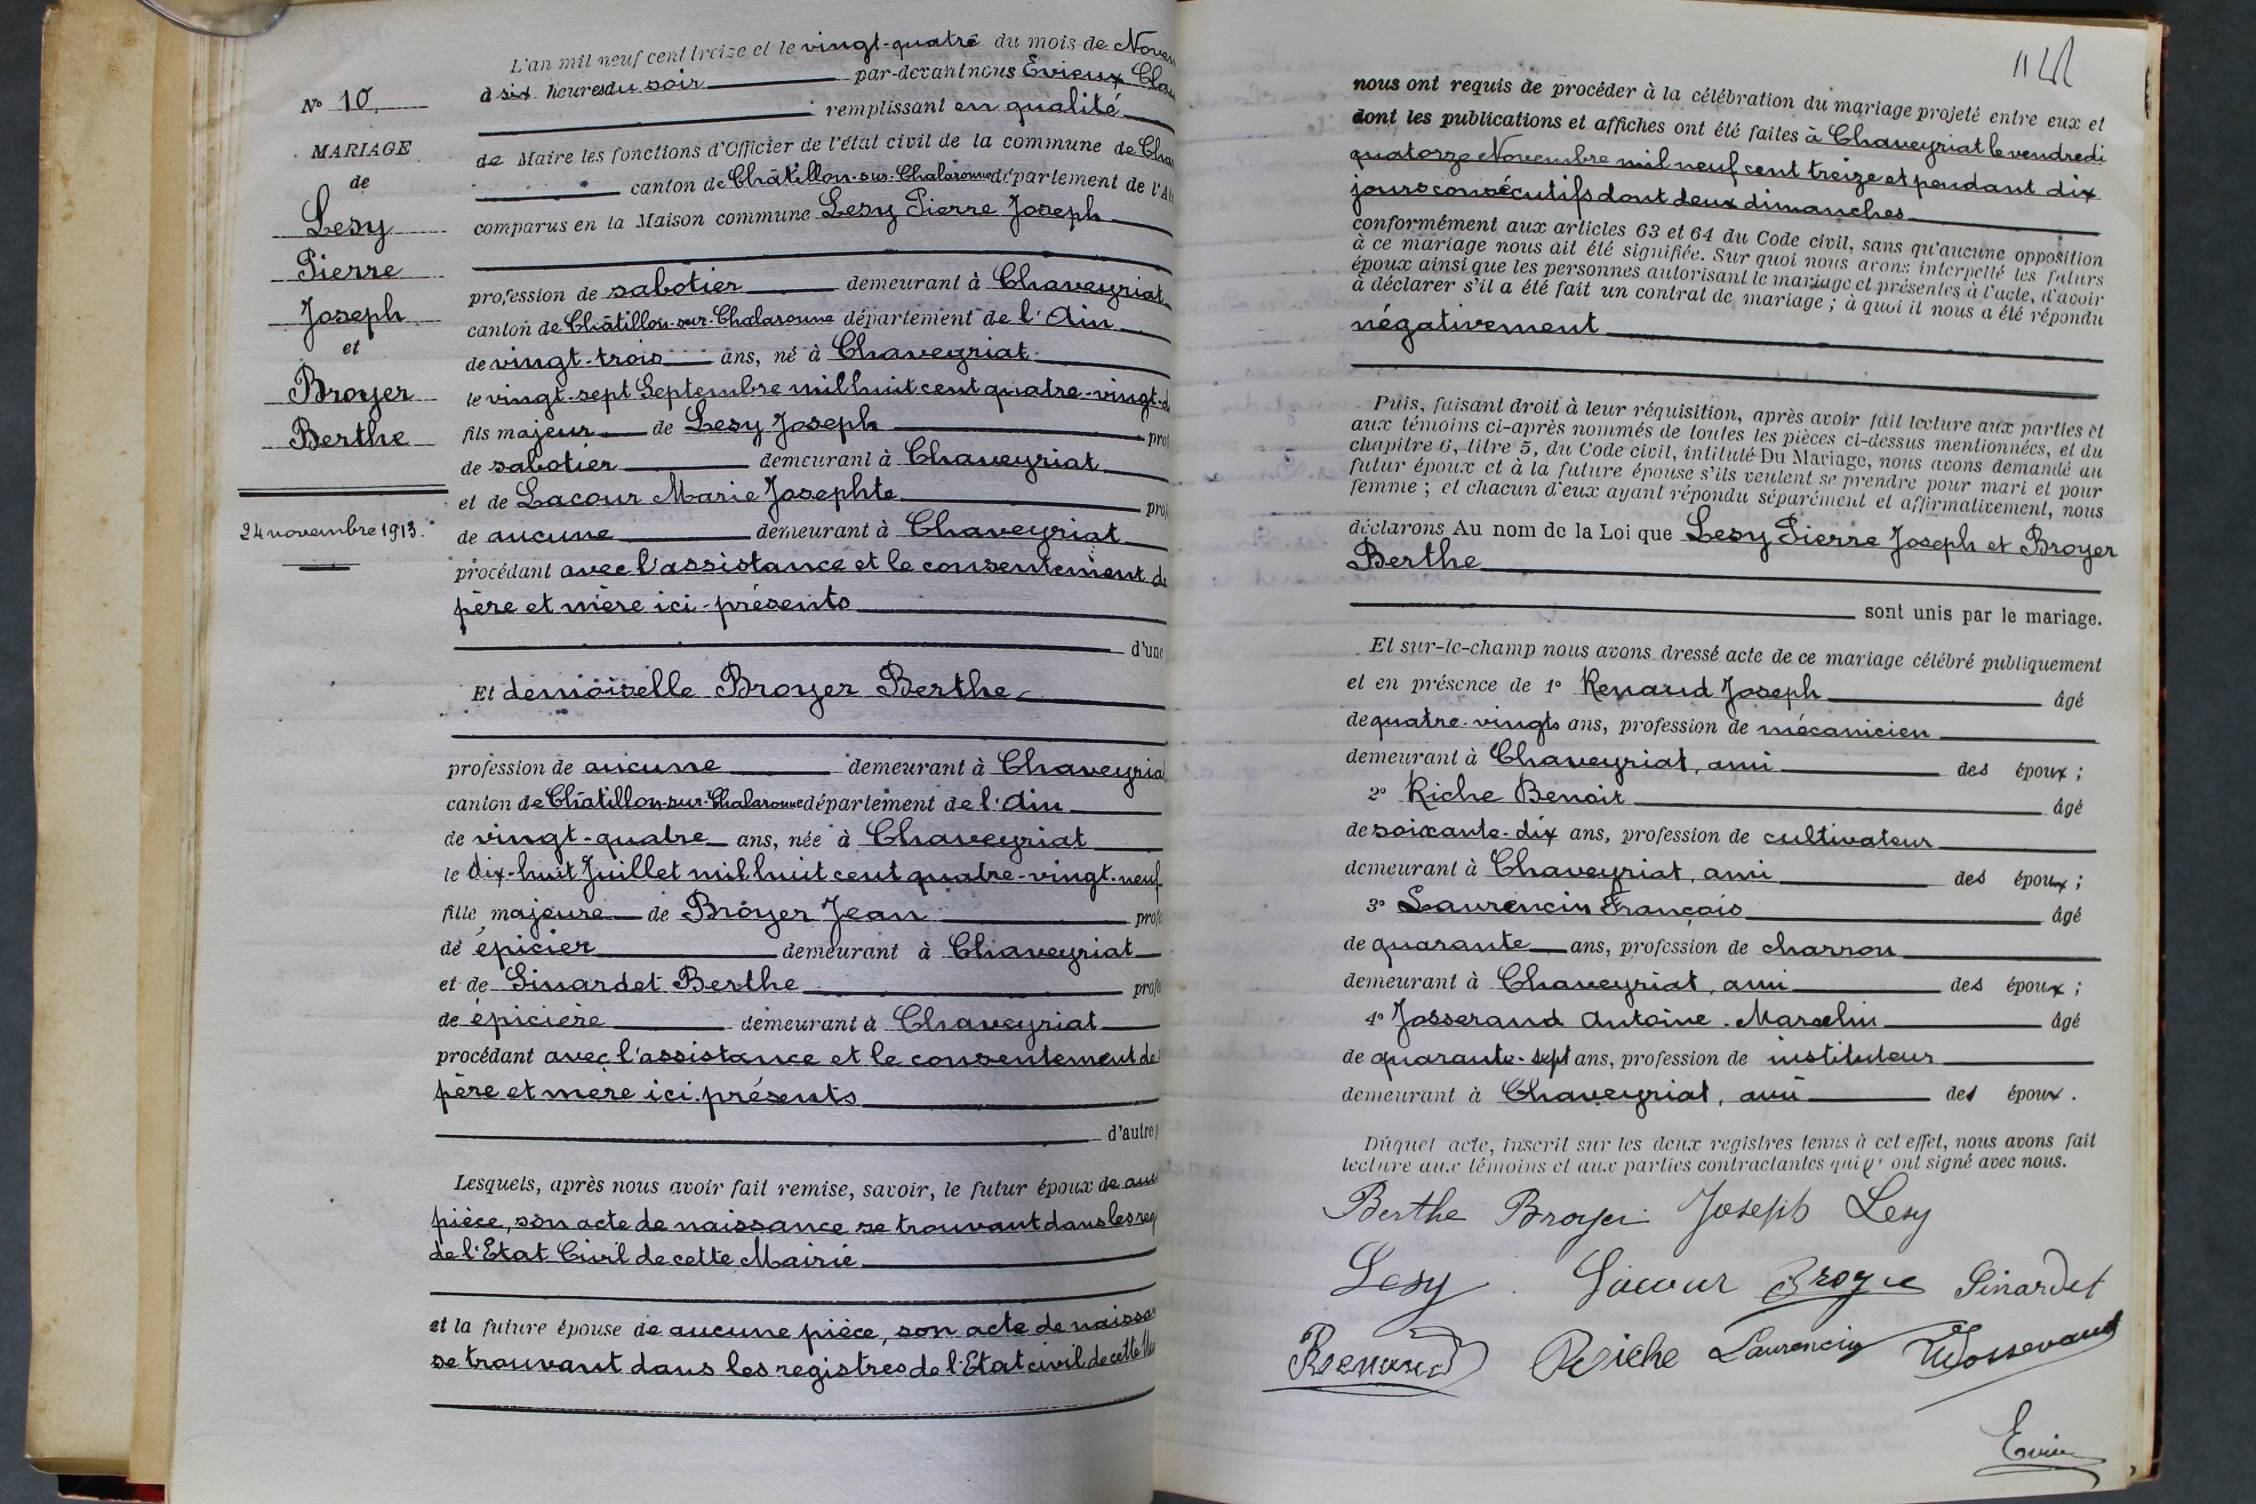 N° 10
MARIAGE
de
Lesy
Pierre
Joseph
et
Broyer
Berthe
24 novembre 1913.
L'an mil neuf cent treize et le vingt-quatre du mois de Novem
à six heures du soir par-devant nous Evieux Clau
remplissant en qualité
de Maire les fonctions d'Officier de l'état civil de la commune de Cha
canton de Châtillon-sur-Chalaronne département de l'Ai
comparus en la Maison commune Lesy Pierre Joseph
profession de sabotier demeurant à Chaveyriat
canton de Châtillon-sur-Chalaronne département de l'Ain
de vingt-trois ans, né à Chaveyriat
le vingt-sept Septembre mil huit cent quatre-vingt-d
fils majeur de Lesy Joseph pro
de sabotier demeurant à Chaveyriat
et de Lacour Marie Josephte pro
de aucune demeurant à Chaveyriat
procédant avec l'assistance et le consentement de
père et mère ici-présents
d'une
Et demoiselle Broyer Berthe
profession de aucune demeurant à Chaveyria
canton de Châtillon-sur-Chalaronne département de l'Ain
de vingt-quatre ans, née à Chaveyriat
le dix-huit Juillet mil huit cent quatre-vingt-neuf
fille majeure de Broyer Jean prof
de épicier demeurant à Chaveyriat
et de Sinardet Berthe prof
de épicière demeurant à Chaveyriat
procédant avec l'assistance et le consentement de
père et mère ici-présents
d'autre
Lesquels, après nous avoir fait remise, savoir, le futur époux de auc
pièce, son acte de naissance se trouvant dans les reg
de l'Etat Civil de cette Mairie
et la future épouse de aucune pièce, son acte de naissa
se trouvant dans les registres de l'Etat civil de cette M
nous ont requis de procéder à la célébration du mariage projeté entre eux et
dont les publications et affiches ont été faites à Chaveyriat le vendredi
quatorze Novembre mil neuf cent treize et pendant dix
jours consécutifs dont deux dimanches
conformément aux articles 63 et 64 du Code civil, sans qu'aucune opposition
à ce mariage nous ait été signifiée. Sur quoi nous avons interpellé les futurs
époux ainsi que les personnes autorisant le mariage et présentes à l'acte, d'avoir
à déclarer s'il a été fait un contrat de mariage ; à quoi il nous a été répondu
négativement
Puis, faisant droit à leur réquisition, après avoir fait lecture aux parties et
aux témoins ci-après nommés de toutes les pièces ci-dessus mentionnées, et du
chapitre 6, titre 5, du Code civil, intitulé Du Mariage, nous avons demandé au
futur époux et à la future épouse s'ils veulent se prendre pour mari et pour
femme ; et chacun d'eux ayant répondu séparément et affirmativement, nous
déclarons Au nom de la Loi que Lesy Pierre Joseph et Broyer
Berthe
sont unis par le mariage.
Et sur-le-champ nous avons dressé acte de ce mariage célébré publiquement
et en présence de 1° Renaud Joseph âgé
de quatre-vingts ans, profession de mécanicien
demeurant à Chaveyriat, ami des époux ;
2° Riche Benoit âgé
de soixante-dix ans, profession de cultivateur
demeurant à Chaveyriat, ami des époux ;
3° Laurencin François âgé
de quarante ans, profession de charron
demeurant à Chaveyriat, ami des époux ;
4° Josserand Antoine-Marcelin âgé
de quarante-sept ans, profession de instituteur
demeurant à Chaveyriat, ami des époux.
Duquel acte, inscrit sur les deux registres tenus à cet effet, nous avons fait
lecture aux témoins et aux parties contractantes qui ont signé avec nous.
Berthe Broyer Joseph Lesy
Lesy Lacour Broyer Sinardet
Renaud Riche Laurencin Josserand
Evieux